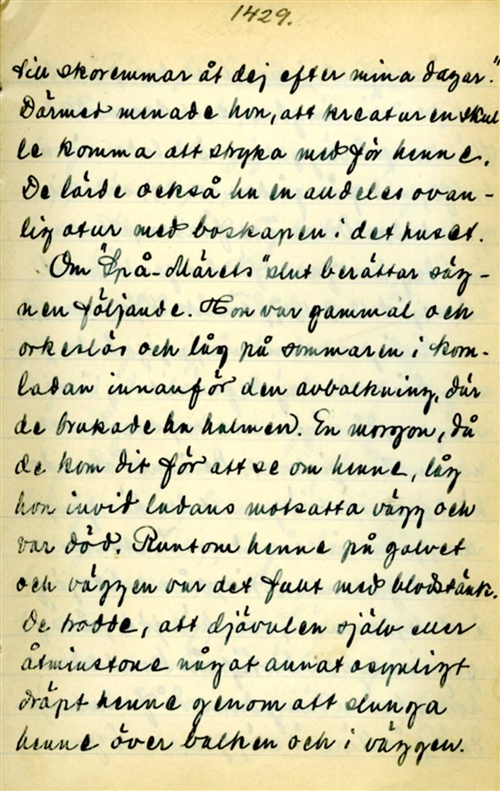 1429.
till skoremmar åt dej efter mina dagar."
Därmed menade hon, att kreaturen skul
le komma att stryka med för henne.
De lärde också ha en alldeles ovan-
lig otur med boskapen i det huset.
Om "Spå-Märets" slut berättar säg-
nen följande. Hon var gammal och
orkeslös och låg på sommaren i korn-
ladan innanför den avbalkning, där
de brukade ha halmen. En morgon, då
de kom dit för att se om henne, låg
hon invid ladans motsatta vägg och
var död. Runtom henne på golvet
och väggen var det fullt med blodstänk.
De trodde, att djävulen själv eller
åtminstone något annat osynligt
dräpt henne genom att slunga
henne över balken och i väggen.